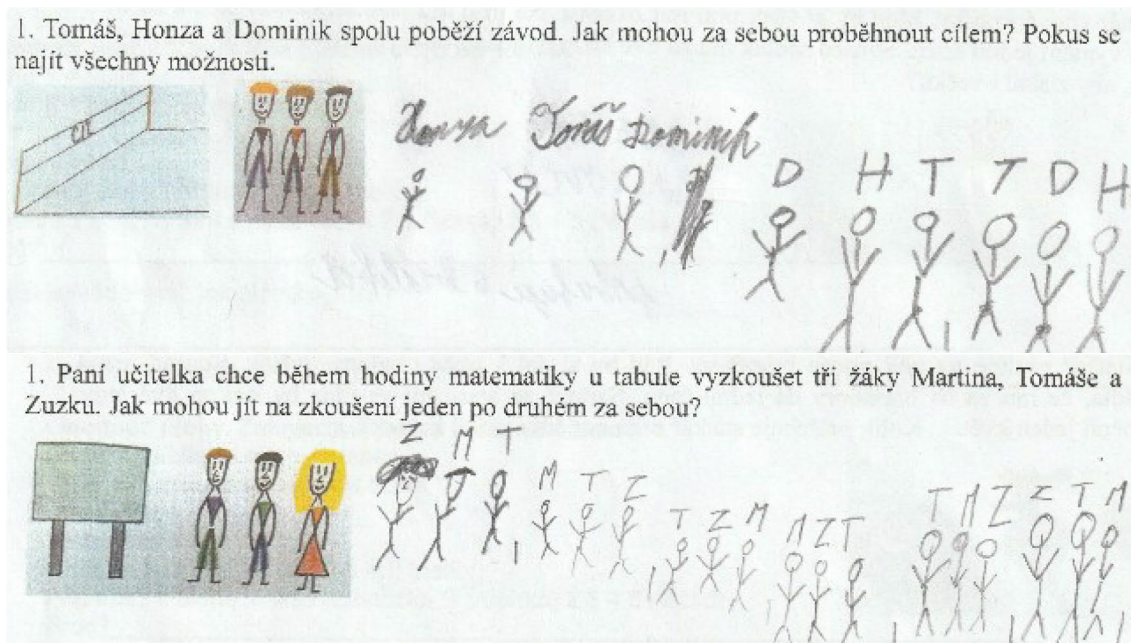 1. Tomáš, Honza a Dominik spolu poběží závod. Jak mohou za sebou proběhnout cílem? Pokus se
najít všechny možnosti.
CÍL
Honza Tomáš Dominik
D H T T D H
1. Paní učitelka chce během hodiny matematiky u tabule vyzkoušet tři žáky Martina, Tomáše a
Zuzku. Jak mohou jít na zkoušení jeden po druhém za sebou?
Z M T
M T Z
T Z M
M Z T
T M Z
Z T M